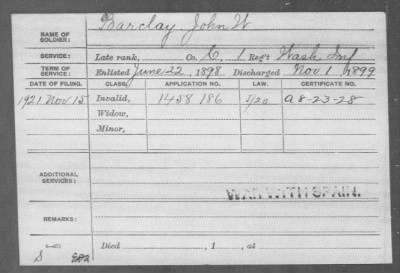 NAME OF SOLDIER: Barclay John W
SERVICE: Late rank, Co. C, 1 Reg't Wash Inf
TERM OF SERVICE: Enlisted June 22, 1898 Discharged Nov 1, 1899
DATE OF FILING. CLASS. APPLICATION NO. LAW. CERTIFICATE NO.
1921 Nov 15 Invalid, 1458186 A 8-23-28
Widow,
Minor,
ADDITIONAL SERVICES:
WAR WITH SPAIN.
REMARKS:
Died , 1 , at
S